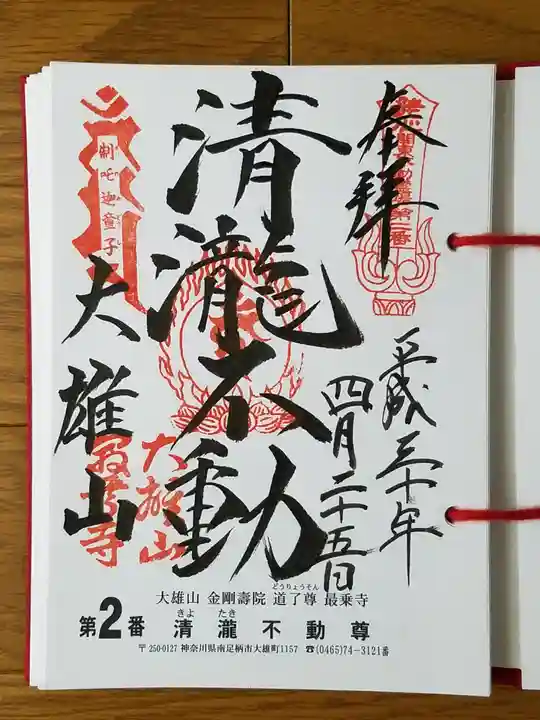 奉拝
関東三十六不動霊場第二番
平成三十年
四月二十五日
清瀧不動
制吒迦童子
大雄山
大雄山
最乗寺
どうりょうそん
大雄山 金剛壽院 道了尊 最乗寺
きよ たき
第2番 清瀧不動尊
〒250-0127 神奈川県南足柄市大雄町1157 ☎(0465)74-3121番